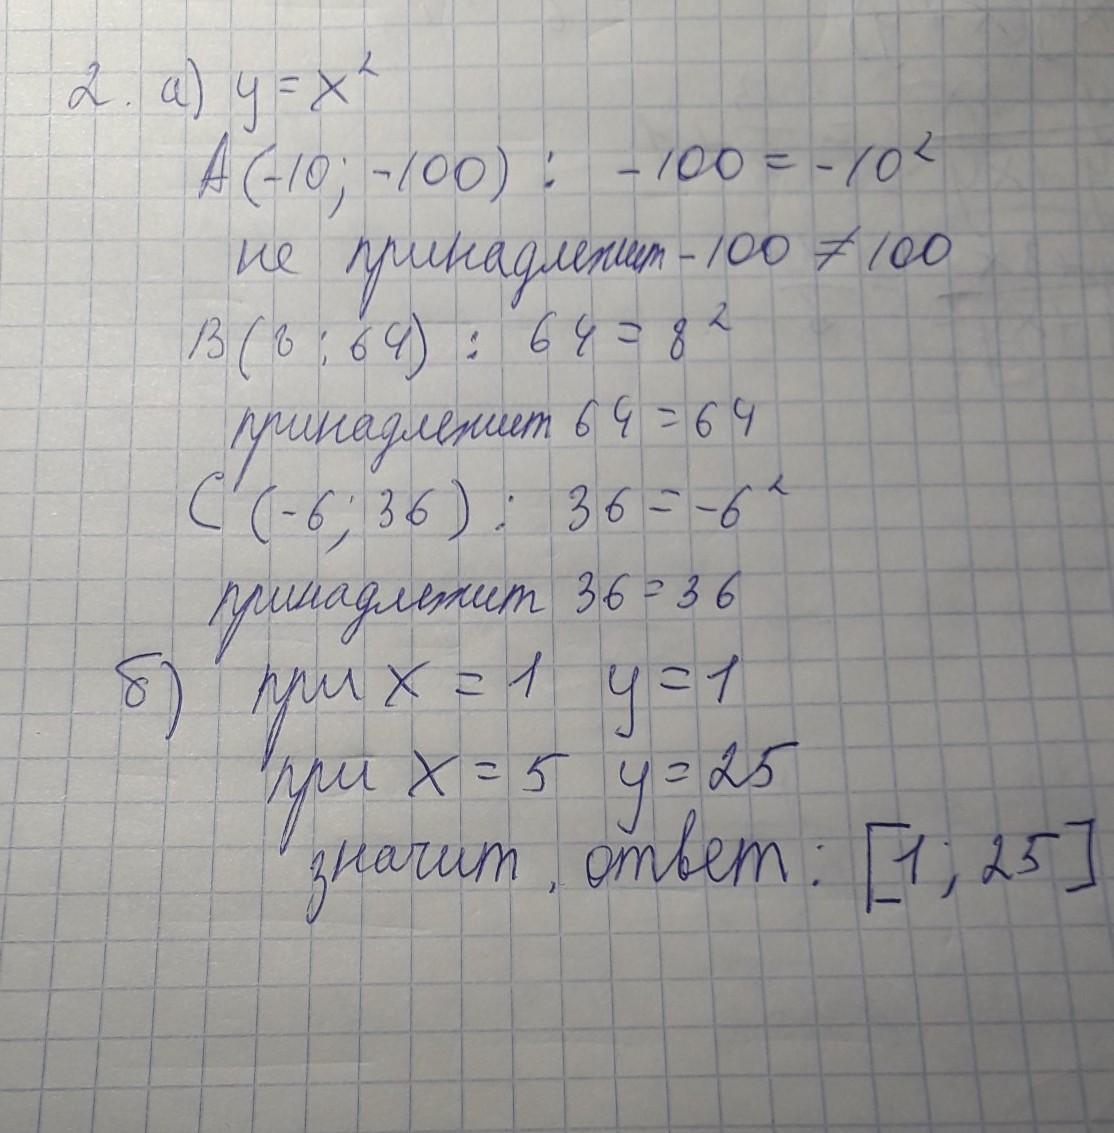 2. а) y = x²
A (-10; -100) : -100 = -10²
не принадлежит -100 ≠ 100
B (8 ; 64) : 64 = 8²
принадлежит 64 = 64
C (-6; 36) : 36 = -6²
принадлежит 36 = 36
б) при x = 1 y = 1
при x = 5 y = 25
значит, ответ : [1; 25]